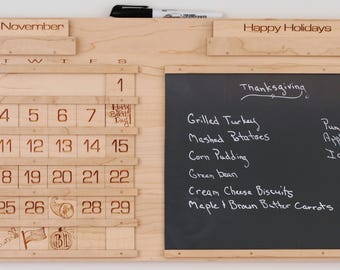 November
Happy Holidays
T W T F S
1
4 5 6 7
11 12 13 14 15
18 19 20 21 22
25 26 28 29
31
Thanksgiving
Grilled Turkey
Mashed Potatoes
Corn Pudding
Green bean
Cream Cheese Biscuits
Maple & Brown Butter Carrots